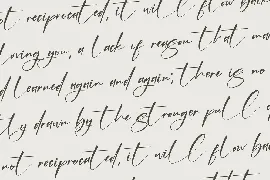 not reciprocated, it will flow back
loving you, a lack of reason that
learned again and again; there is no
drawn by the stronger pull
not reciprocated, it will flow